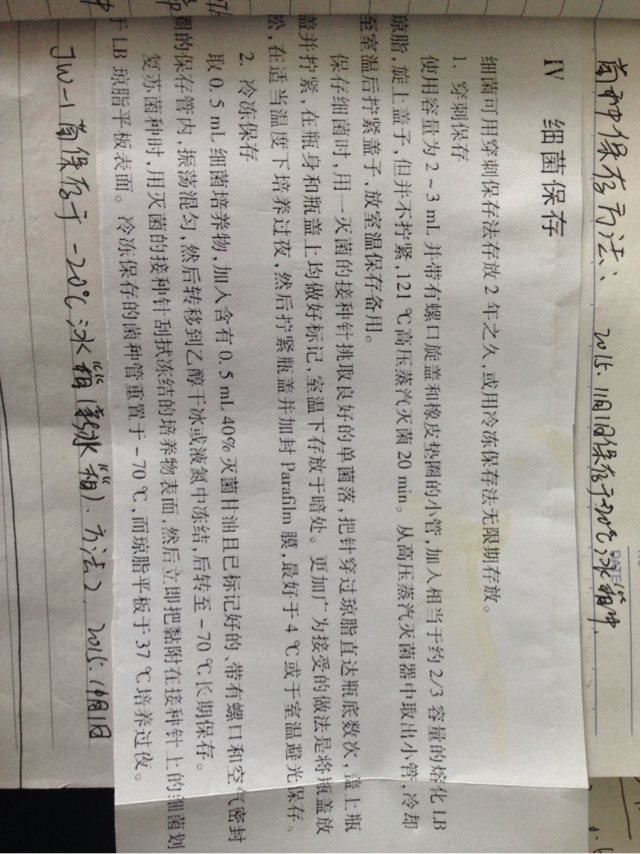 菌种保存方法：
2015.11月1日保存于-20℃冰箱中.
DATE
IV 细菌保存
细菌可用穿刺保存法存放 2 年之久,或用冷冻保存法无限期存放。
1. 穿刺保存
使用容量为 2～3 mL 并带有螺口旋盖和橡皮垫圈的小管,加入相当于约 2/3 容量的熔化 LB
琼脂,旋上盖子,但并不拧紧,121 ℃高压蒸汽灭菌 20 min。从高压蒸汽灭菌器中取出小管,冷却
至室温后拧紧盖子,放室温保存备用。
保存细菌时,用一灭菌的接种针挑取良好的单菌落,把针穿过琼脂直达瓶底数次,盖上瓶
盖并拧紧,在瓶身和瓶盖上均做好标记,室温下存放于暗处。更加广为接受的做法是将瓶盖放
松,在适当温度下培养过夜,然后拧紧瓶盖并加封 Parafilm 膜,最好于 4 ℃或于室温避光保存。
2. 冷冻保存
取 0.5 mL 细菌培养物,加入含有 0.5 mL 40%灭菌甘油且已标记好的、带有螺口和空气密封
圈的保存管内,振荡混匀,然后转移到乙醇干冰或液氮中冻结,后转至－70 ℃长期保存。
复苏菌种时,用灭菌的接种针刮拭冻结的培养物表面,然后立即把黏附在接种针上的细菌划
于 LB 琼脂平板表面。冷冻保存的菌种管重置于－70 ℃,而琼脂平板于 37 ℃培养过夜。
JW-1菌保存于-20℃冰箱(新冰箱). 方法2. 2015.